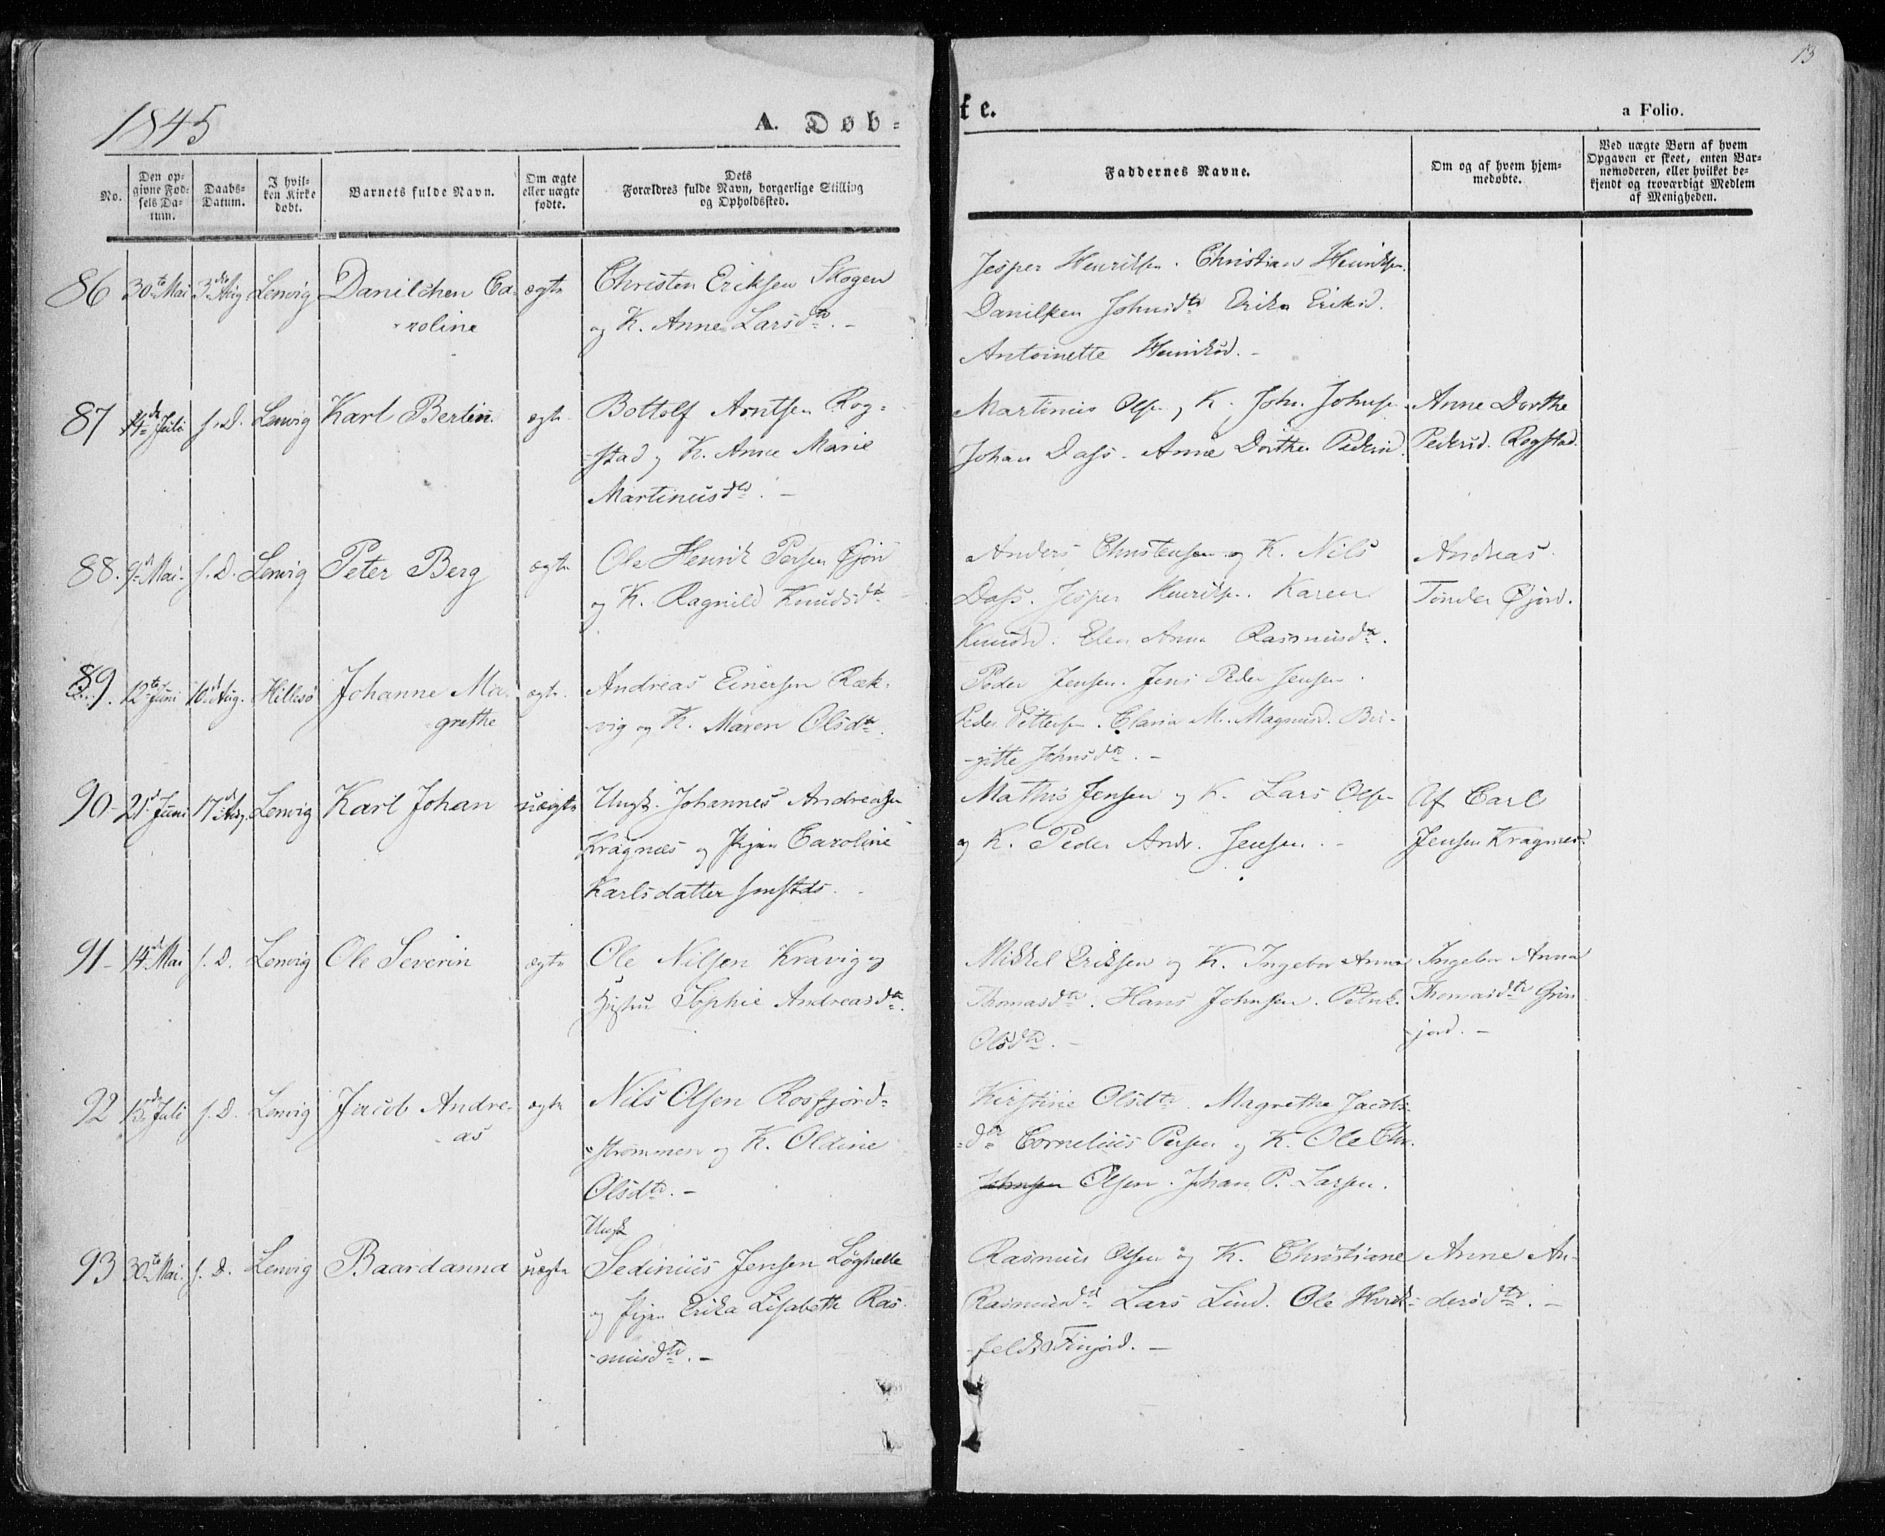 13
1845
A. Døb-
fe.
a Folio.
No.
Den op-
givne Fød-
sels Da-
tum.
Daabs-
Datum.
I hvil-
ken Kirke
døbt.
Barnets fulde Navn.
Om ægte
eller uægte
fødte.
Dets
Forældres fulde Navn, borgerlige Stilling
og Opholdssted.
Faddernes Navne.
Om og af hvem hjem-
medøbte.
Ved uægte Børn af hvem
Opgaven er skeet, enten Bar-
nemoderen, eller hvilket be-
kjendt og troværdigt Medlem
af Menigheden.
86 30te Mai 3die Aug Lenvig Danilchen Ca- ægte Christen Eriksen Skogen
roline og K. Anne Larsdtr. -
Jesper Henriksen. Christian Henriksen.
Danilken Johnsdtr Erika Eriksd.
Antoinette Henriksd. -
87 14de Juli s. D. Lenvig Karl Bertin. ægte Bottolf Arntsen Rog-
stad og K. Anne Marie
Martinusdtr. -
Martinus Olsen og K. John Johnsen Anne Dorthe
Johan Dass. Anne Dorthe Pedersd. Pedersd. Rogstad.
88. 9d Mai. s. D. Lenvig Peter Berg ægte Ole Henrik Persen Øjord
og K. Ragnild Knudsdtr
Anders Christensen og K. Nils Andreas
Dass. Jesper Henriksen. Karen Tønder Øjord.
Knudsd. Elen Anna Rasmusdtr.
89. 12te Juni 10d Aug. Hillesø Johanne Ma- ægte Andreas Einersen Ræk-
grethe vig og K. Maren Olsdtr.
Peder Jensen. Jens Peder Jensen.
Peder Pettersen. Elaria M. Magnusd. Bir-
gitte Johnsdtr. -
90- 21d Juni 17d Aug Lenvig Karl Johan uægte Ungk. Johannes Andreasen
Kragnæs og Pigen Caroline
Karlsdatter smstds.
Mathis Jensen og K. Lars Olsen Af Carl
og K. Peder Andr. Jensen. - Jensen Kragnes.
91- 14d Mai s. D. Lenvig Ole Severin ægte Ole Nilsen Kravig og
Hustru Sophie Andreasdtr.
Mikkel Eriksen og K. Ingebor Anna Ingebor Anna
Thomasdtr. Hans Johnsen. Petrik. Thomasdtr Grun-
Olsdtr. - jord. -
92 15de Juli s. D. Lenvig Jacob Andre- ægte Nils Olsen Rosfjord-
as strømmen og K. Oldine
Olsdtr. -
Kirstine Olsdtr. Magrethe Jacobs-
dtr Cornelius Persen og K. Ole Chr.
Johnsen Olsen. Johan P. Larsen.
93 30te Mai. s. D. Lenvig Baardanna uægte Ungk
Sedinius Jensen Løghelle
og Pigen Erika Lisabeth Ras-
musdtr. -
Rasmus Olsen og K. Christiane Anne An-
Rasmusdtr Lars Lind. Ole Hvid- dersdtr. -
feldt Finjord. -